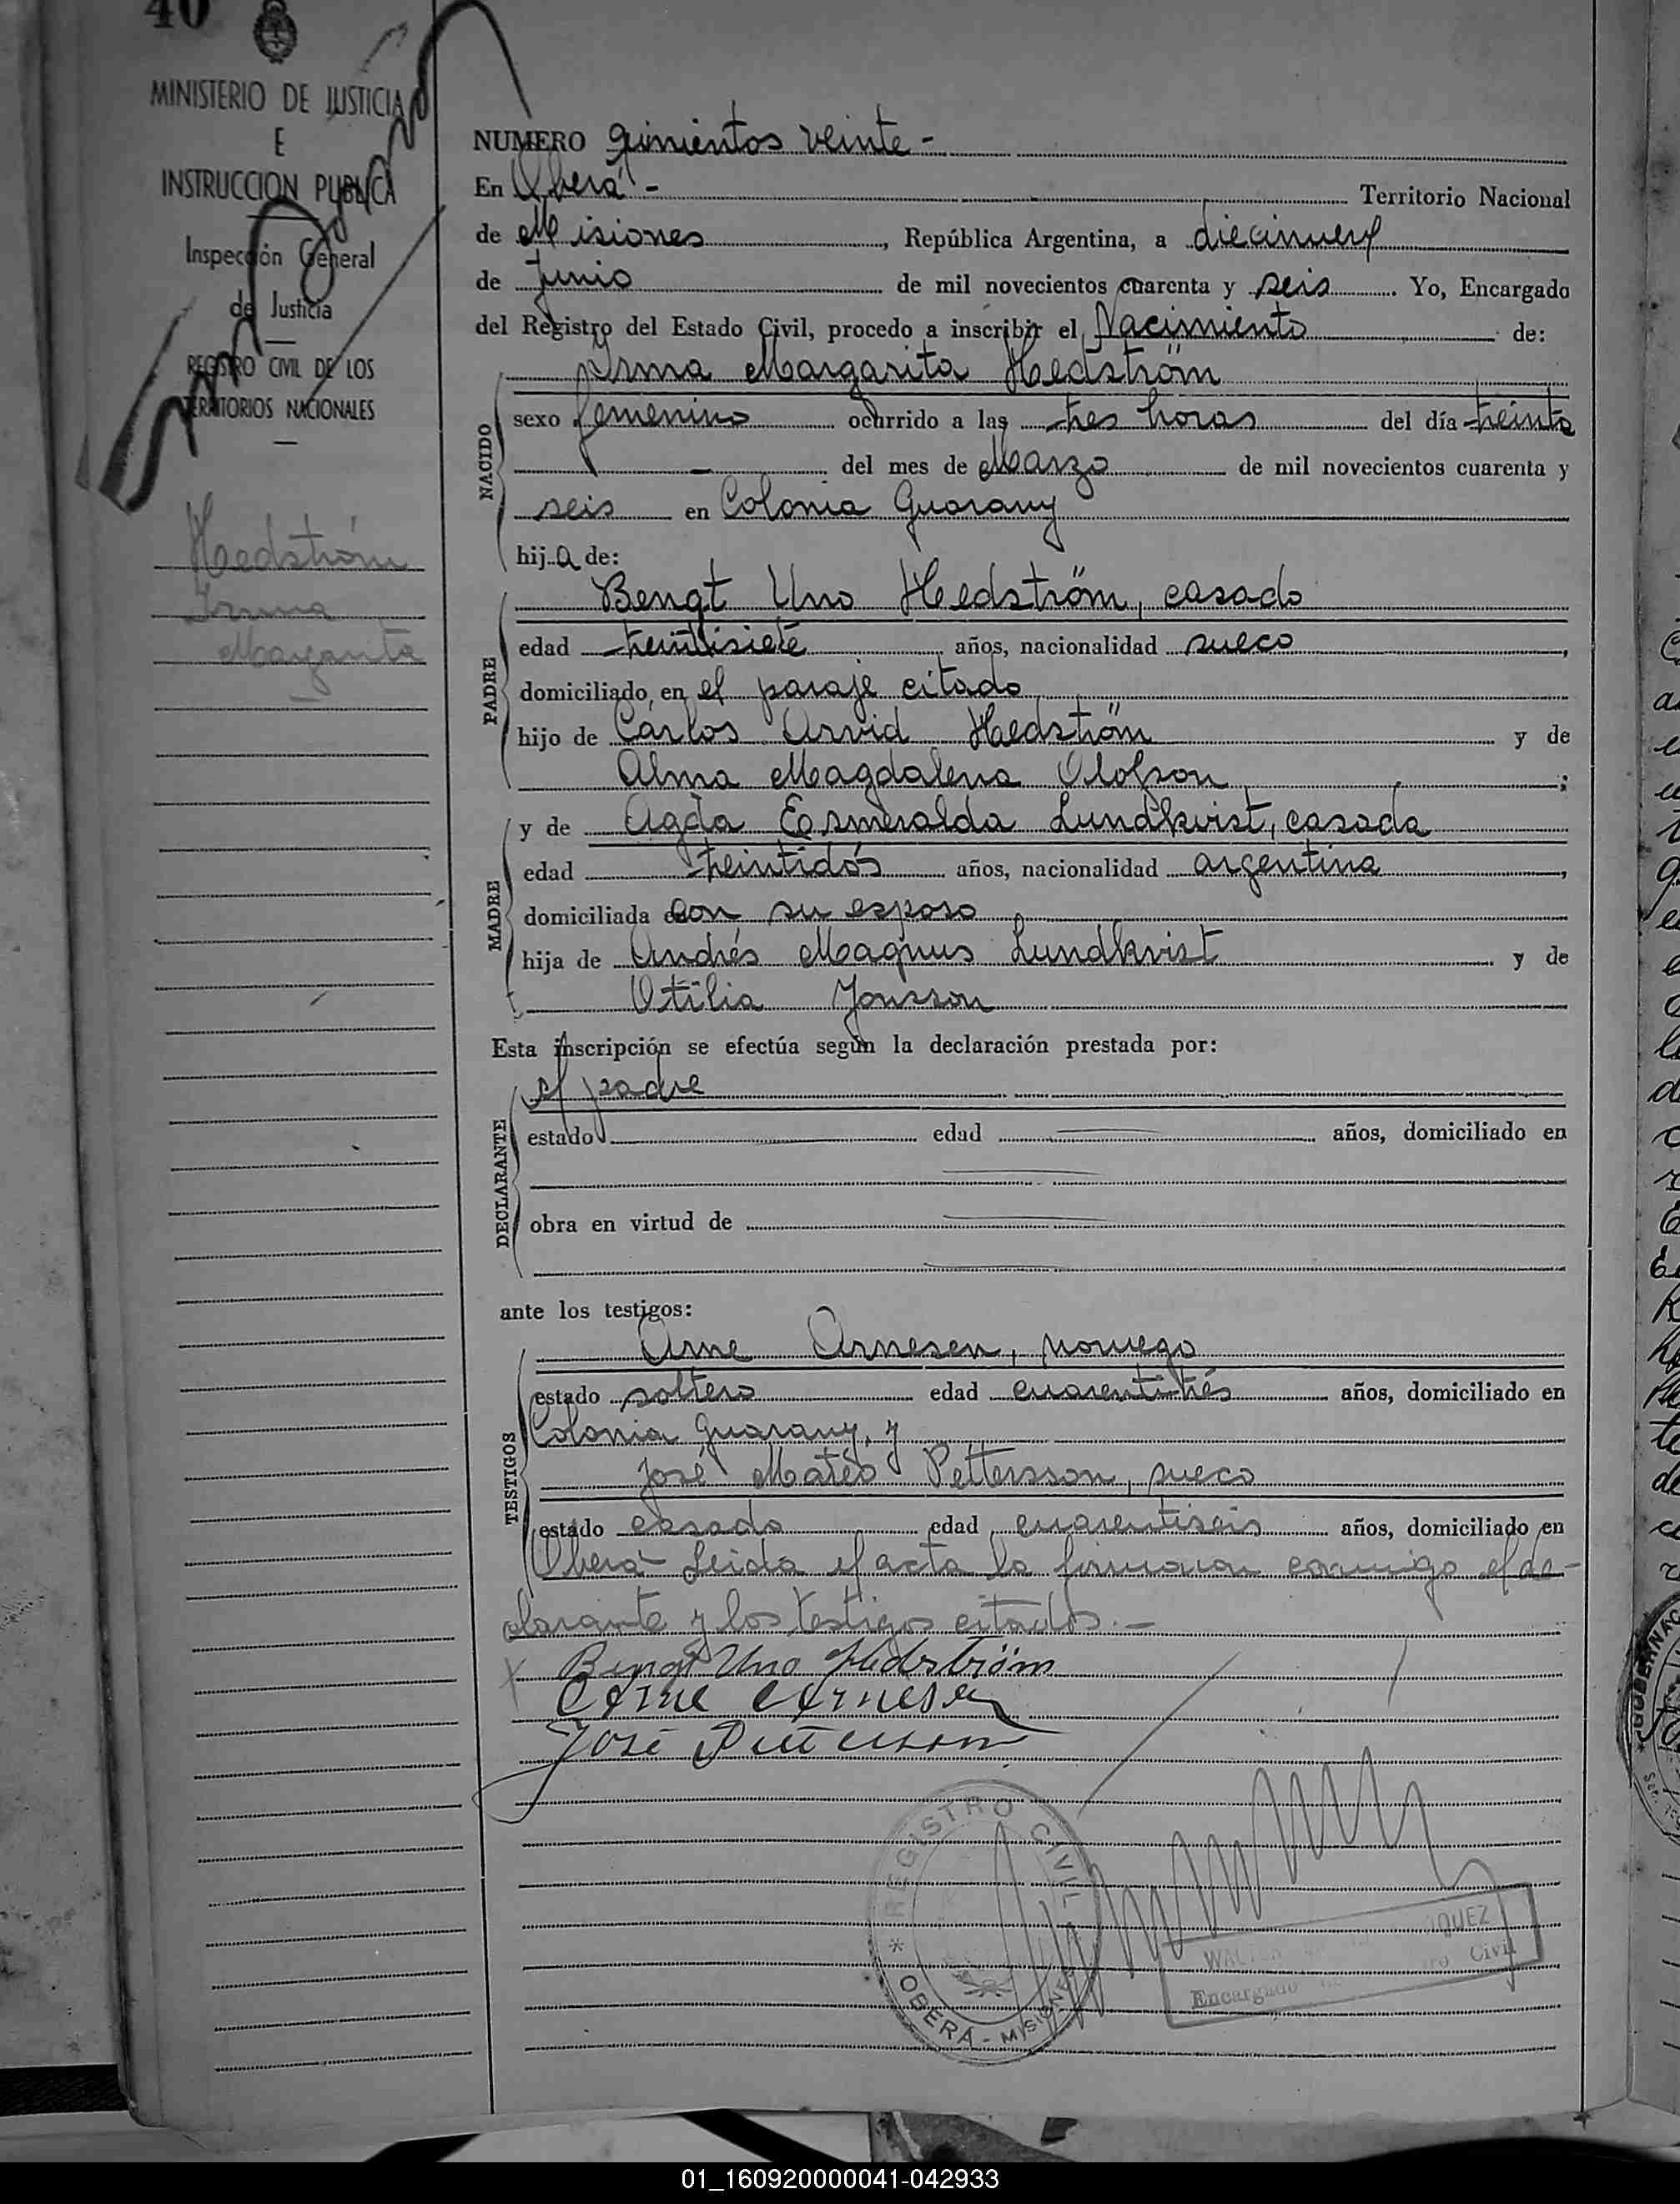 40
MINISTERIO DE JUSTICIA
E
INSTRUCCION PUBLICA
Inspección General
de Justicia
REGISTRO CIVIL DE LOS
TERRITORIOS NACIONALES
Hedström
Irma
Margarita
NUMERO quinientos veinte -
En Oberá - Territorio Nacional
de Misiones, República Argentina, a diecinueve
de Junio de mil novecientos cuarenta y seis. Yo, Encargado
del Registro del Estado Civil, procedo a inscribir el Nacimiento de:
Irma Margarita Hedström
NACIDO
sexo femenino ocurrido a las tres horas del día treinta
— del mes de Marzo de mil novecientos cuarenta y
seis en Colonia Guarany
hija de:
Bengt Uno Hedström, casado
PADRE
edad treintisiete años, nacionalidad sueco,
domiciliado en el paraje citado
hijo de Carlos Arvid Hedström y de
Alma Magdalena Olofson;
y de Agda Esmeralda Lundkvist, casada
MADRE
edad treintidós años, nacionalidad argentina,
domiciliada con su esposo
hija de Andrés Magnus Lundkvist y de
Otilia Jonsson
Esta inscripción se efectúa según la declaración prestada por:
el padre
DECLARANTE
estado edad años, domiciliado en
obra en virtud de
ante los testigos:
Arne Arnesen, noruego
TESTIGOS
estado soltero edad cuarentitrés años, domiciliado en
Colonia Guarany, y
José Matéo Pettersson, sueco
estado casado edad cuarentiseis años, domiciliado en
Oberá- Leida el acta la firmaron conmigo el de-
clarante y los testigos citados.-
Bengt Uno Hedström
Arne Arnesen
José Pettersson
REGISTRO CIVIL
* OBERÁ - MISIONES
WALTER
Encargado Civil
01_160920000041-042933